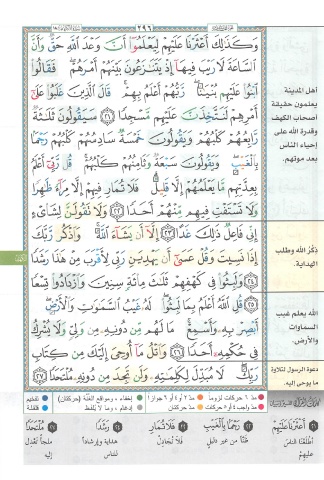 ٢٩٦
وَكَذَٰلِكَ أَعْثَرْنَا عَلَيْهِمْ لِيَعْلَمُوٓا۟ أَنَّ وَعْدَ ٱللَّهِ حَقٌّ وَأَنَّ
ٱلسَّاعَةَ لَا رَيْبَ فِيهَآ إِذْ يَتَنَٰزَعُونَ بَيْنَهُمْ أَمْرَهُمْ ۖ فَقَالُوا۟
ٱبْنُوا۟ عَلَيْهِم بُنْيَٰنًا ۖ رَّبُّهُمْ أَعْلَمُ بِهِمْ ۚ قَالَ ٱلَّذِينَ غَلَبُوا۟ عَلَىٰٓ
أَمْرِهِمْ لَنَتَّخِذَنَّ عَلَيْهِم مَّسْجِدًا ٢١ سَيَقُولُونَ ثَلَٰثَةٌ
رَّابِعُهُمْ كَلْبُهُمْ وَيَقُولُونَ خَمْسَةٌ سَادِسُهُمْ كَلْبُهُمْ رَجْمًۢا
بِٱلْغَيْبِ ۖ وَيَقُولُونَ سَبْعَةٌ وَثَامِنُهُمْ كَلْبُهُمْ ۚ قُل رَّبِّىٓ أَعْلَمُ
بِعِدَّتِهِم مَّا يَعْلَمُهُمْ إِلَّا قَلِيلٌ ۗ فَلَا تُمَارِ فِيهِمْ إِلَّا مِرَآءً ظَٰهِرًا
وَلَا تَسْتَفْتِ فِيهِم مِّنْهُمْ أَحَدًا ٢٢ وَلَا تَقُولَنَّ لِشَا۟ىْءٍ
إِنِّى فَاعِلٌ ذَٰلِكَ غَدًا ٢٣ إِلَّآ أَن يَشَآءَ ٱللَّهُ ۚ وَٱذْكُر رَّبَّكَ
إِذَا نَسِيتَ وَقُلْ عَسَىٰٓ أَن يَهْدِيَنِ رَبِّى لِأَقْرَبَ مِنْ هَٰذَا رَشَدًا
٢٤ وَلَبِثُوا۟ فِى كَهْفِهِمْ ثَلَٰثَ مِا۟ئَةٍ سِنِينَ وَٱزْدَادُوا۟ تِسْعًا
٢٥ قُلِ ٱللَّهُ أَعْلَمُ بِمَا لَبِثُوا۟ ۖ لَهُۥ غَيْبُ ٱلسَّمَٰوَٰتِ وَٱلْأَرْضِ ۖ
أَبْصِرْ بِهِۦ وَأَسْمِعْ ۚ مَا لَهُم مِّن دُونِهِۦ مِن وَلِىٍّ وَلَا يُشْرِكُ
فِى حُكْمِهِۦٓ أَحَدًا ٢٦ وَٱتْلُ مَآ أُوحِىَ إِلَيْكَ مِن كِتَابِ
رَبِّكَ ۖ لَا مُبَدِّلَ لِكَلِمَٰتِهِۦ وَلَن تَجِدَ مِن دُونِهِۦ مُلْتَحَدًا ٢٧
أهل المدينة
يعلمون حقيقة
اصحاب الكهف
وقدرة الله على
إحياء الناس
بعد موتهم.
ذِكْرُ الله وطلب
الهداية.
الله يعلم غيب
السماوات
والأرض.
دعوة الرسول لتلاوة
ما يوحى اليه.
مدّ ٦ حركات لزوماً
مدّ ٢ أو ٤ أو ٦ جوازاً
إخفاء، ومواقع الغُنَّة (حركتان)
تفخيم
مدّ واجب ٤ أو ٥ حركات
مدّ حركتان
إدغام، وما لا يُلفَظ
قلقلة
٢١ أَعْثَرْنَا عَلَيْهِمْ
أطْلَعْنا النّاسَ
عليهِمْ
٢٢ رَجْمًا بِالْغَيْبِ
ظنّاً من غيرِ دليلٍ
٢٢ فَلَا تُمَارِ
فلا تُجادِلْ
٢٤ رَشَدًا
هدايةً وإرشاداً
للناسِ
٢٧ مُلْتَحَدًا
ملجأً تَعْدِلُ
إليه